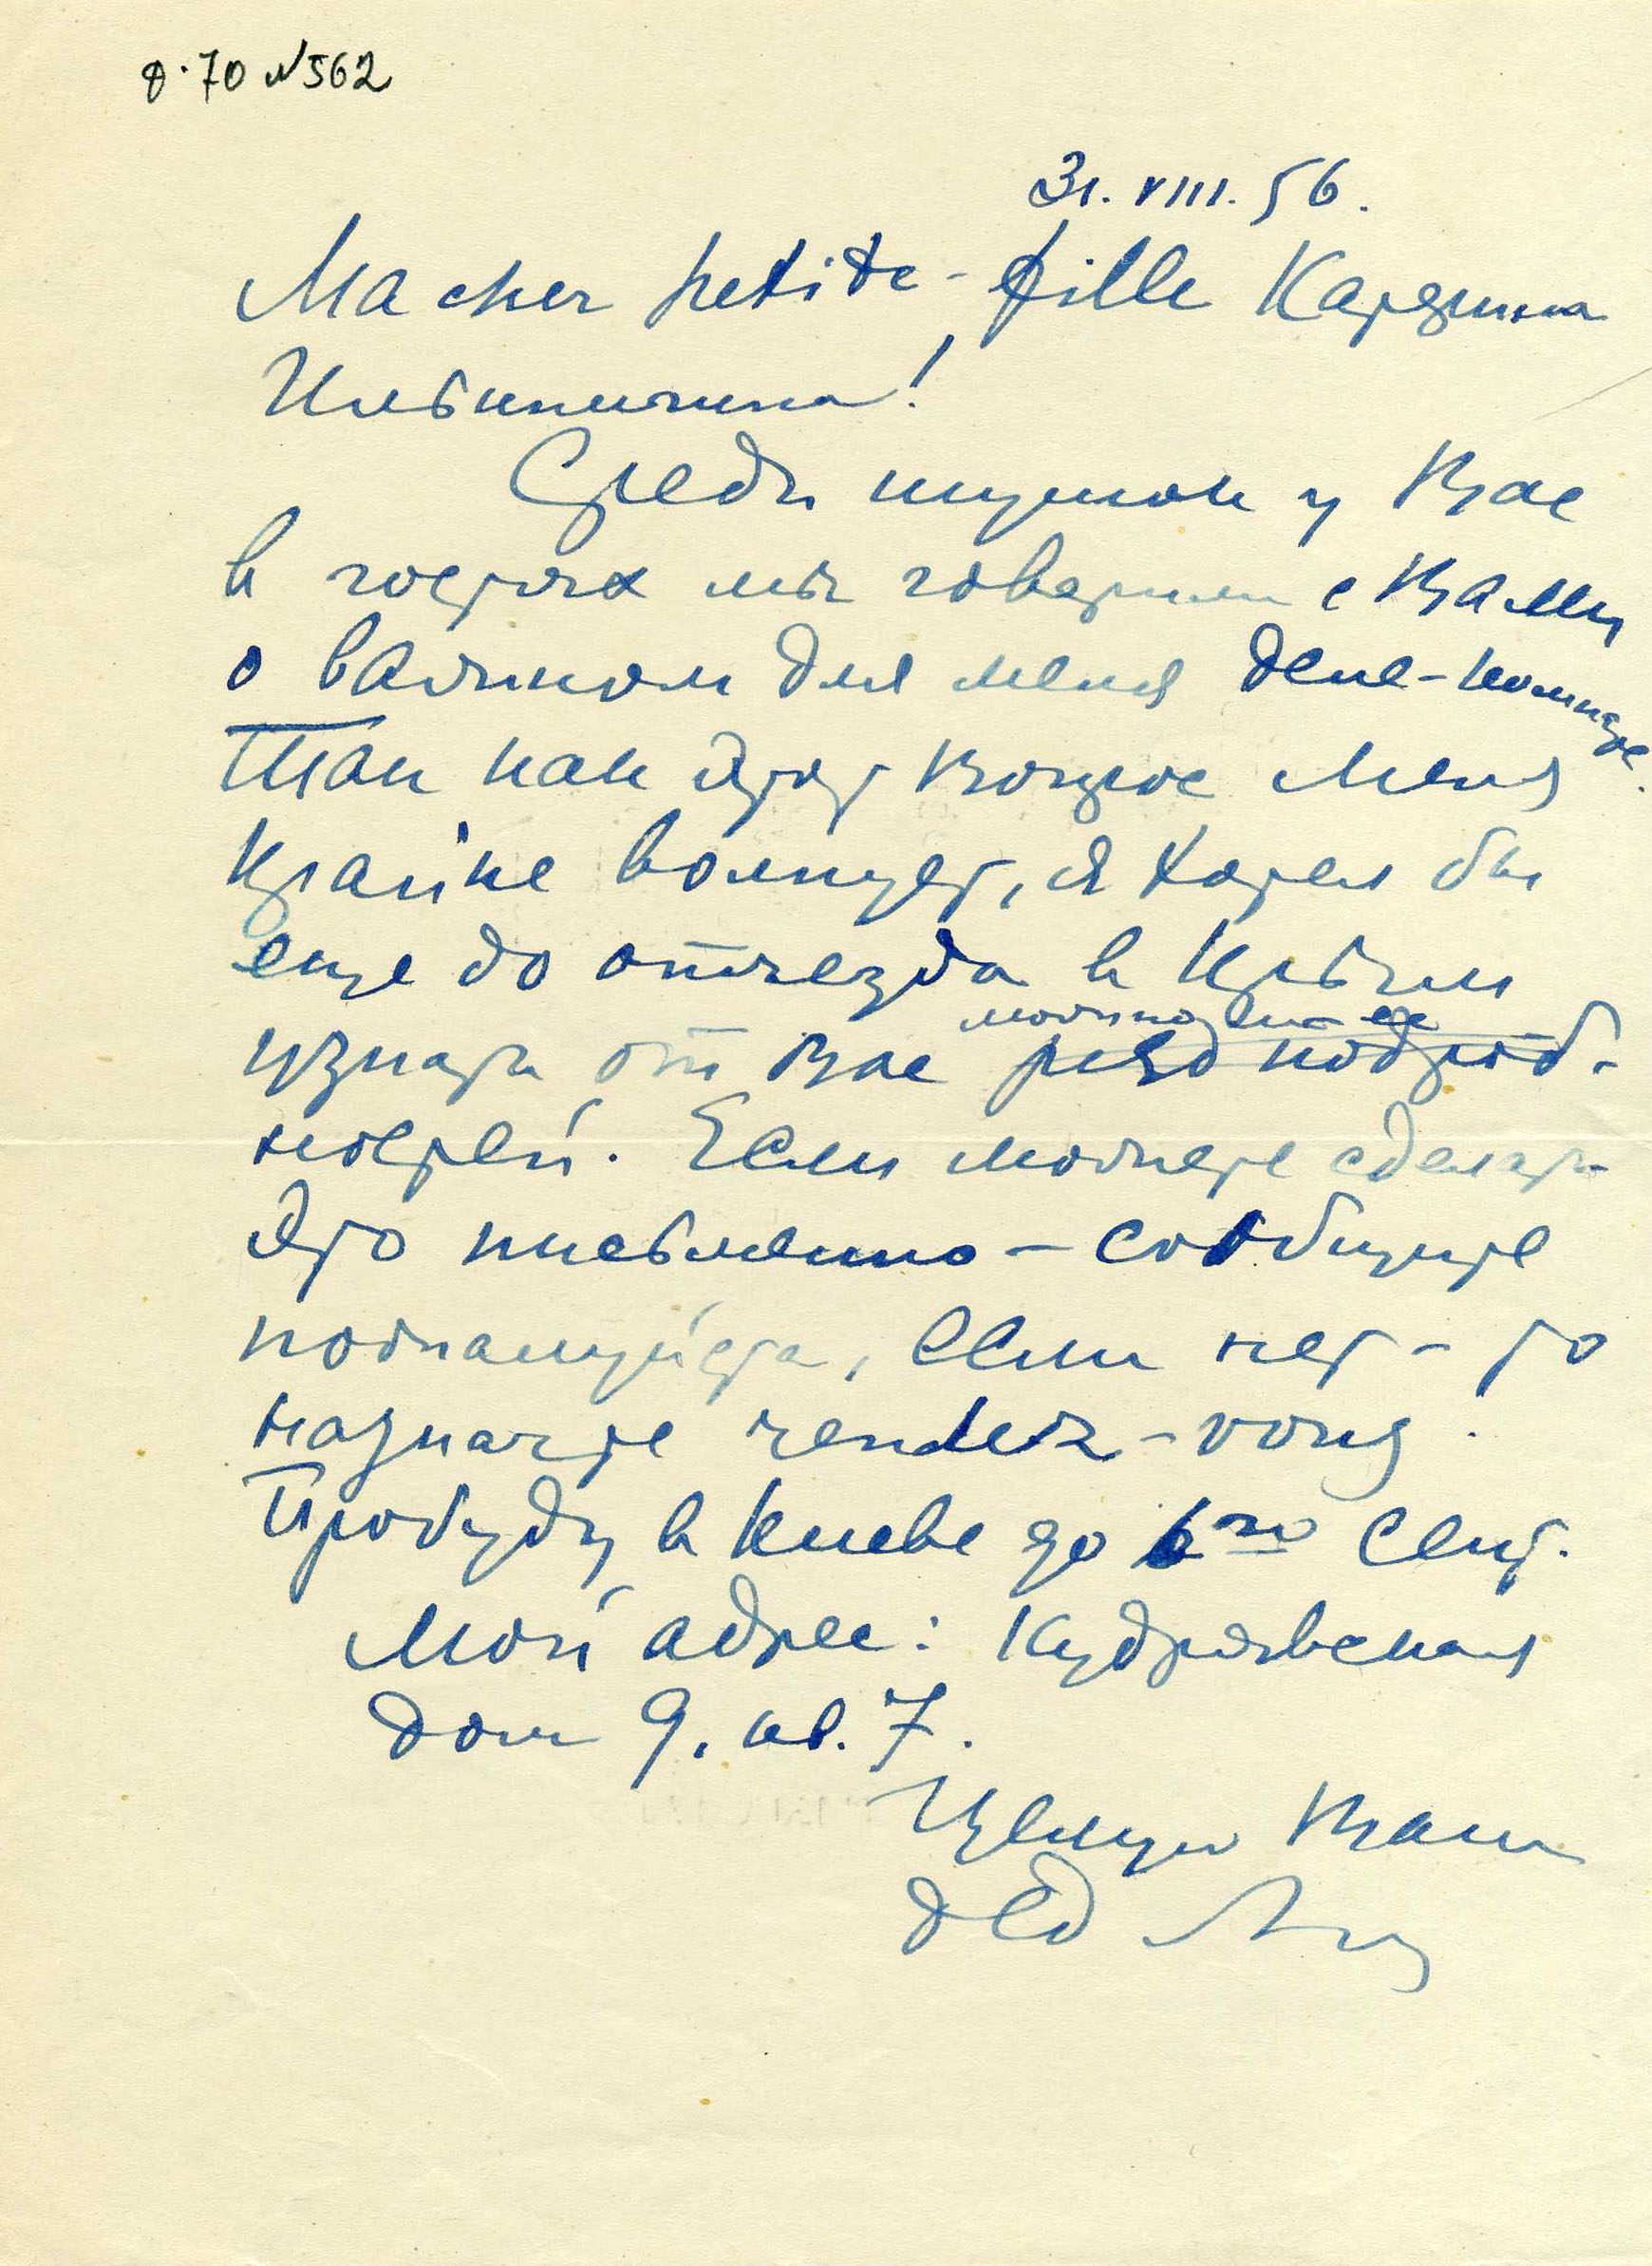 ф. 70 №562
31.VIII.56.
Ma cher petite-fille Катерина
Ильинична!
Среди шуток у Вас
в гостях мы говорили с Вами
о важном для меня деле-комнате.
Так как этот вопрос меня
крайне волнует, я хотел бы
еще до отъезда в Крым
узнать от Вас ряд подроб-
ностей. Если можете сделать
это письменно – сообщите
пожалуйста, если нет – то
назначте rendez-vous.
Пробуду в Киеве до 6го сент.
Мой адрес: Кудрявская
дом 9. кв. 7.
Целую Ваш
дед